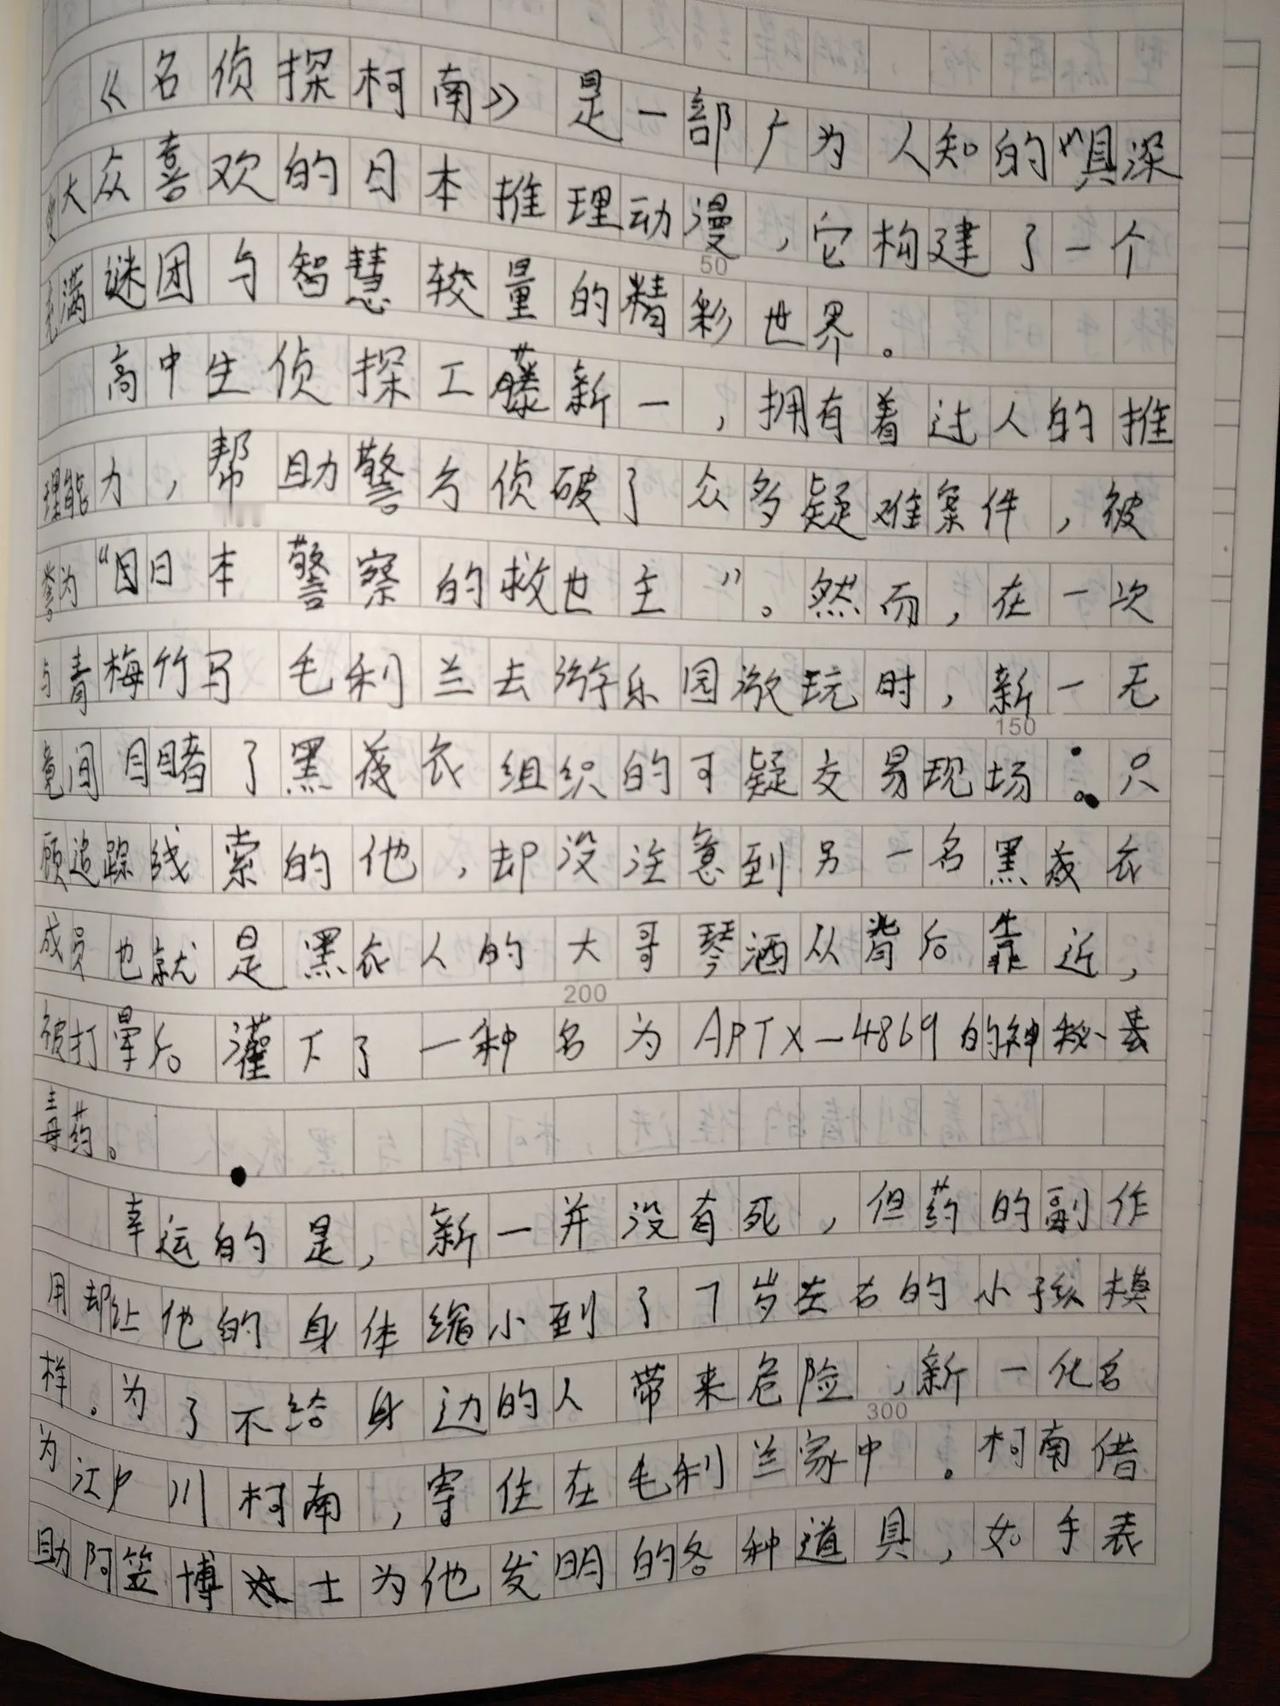 《名侦探柯南》是一部广为人知的深
大众喜欢的日本推理动漫，它构建了一个
充满谜团与智慧较量的精彩世界。
高中生侦探工藤新一，拥有着过人的推
理能力，帮助警方侦破了众多疑难案件，被
誉为“日本警察的救世主”。然而，在一次
与青梅竹马毛利兰去游乐园游玩时，新一无
意间目睹了黑衣组织的可疑交易现场。只
顾追踪线索的他，却没注意到另一名黑衣
成员也就是黑衣人的大哥琴酒从背后靠近，
被打晕后灌下了一种名为APTX-4869的神秘毒
毒药。
幸运的是，新一并没有死，但药的副作
用却让他的身体缩小到了7岁左右的小孩模
样。为了不给身边的人带来危险，新一化名
为江户川柯南，寄住在毛利兰家中。柯南借
助阿笠博士为他发明的各种道具，如手表
50
150
200
300